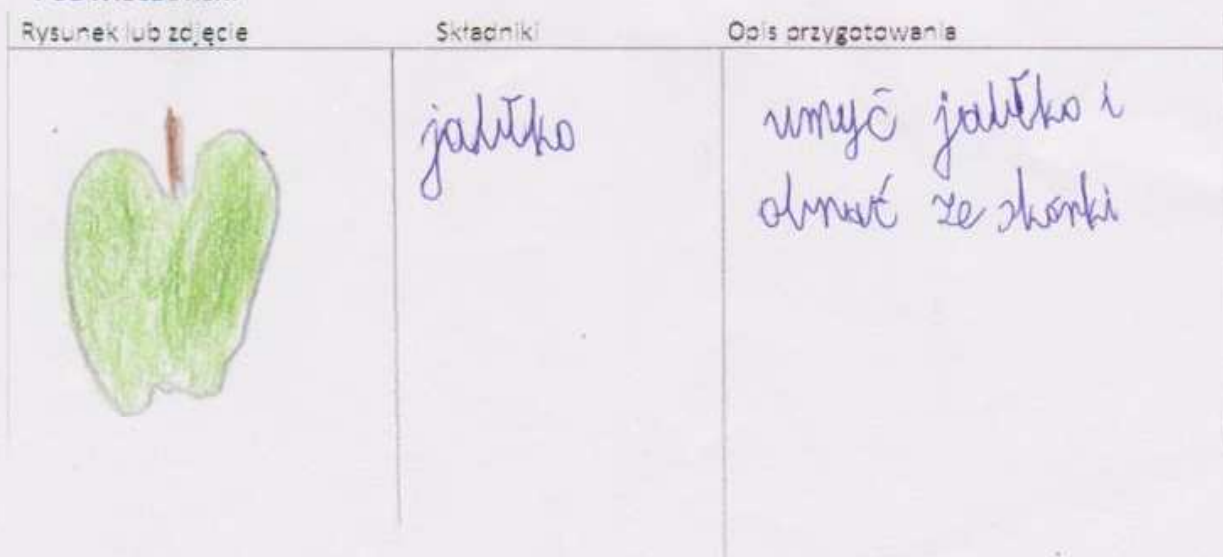 Rysunek lub zdjęcie
Składniki
Opis przygotowania
jabłko
umyć jabłko i
obrać ze skórki